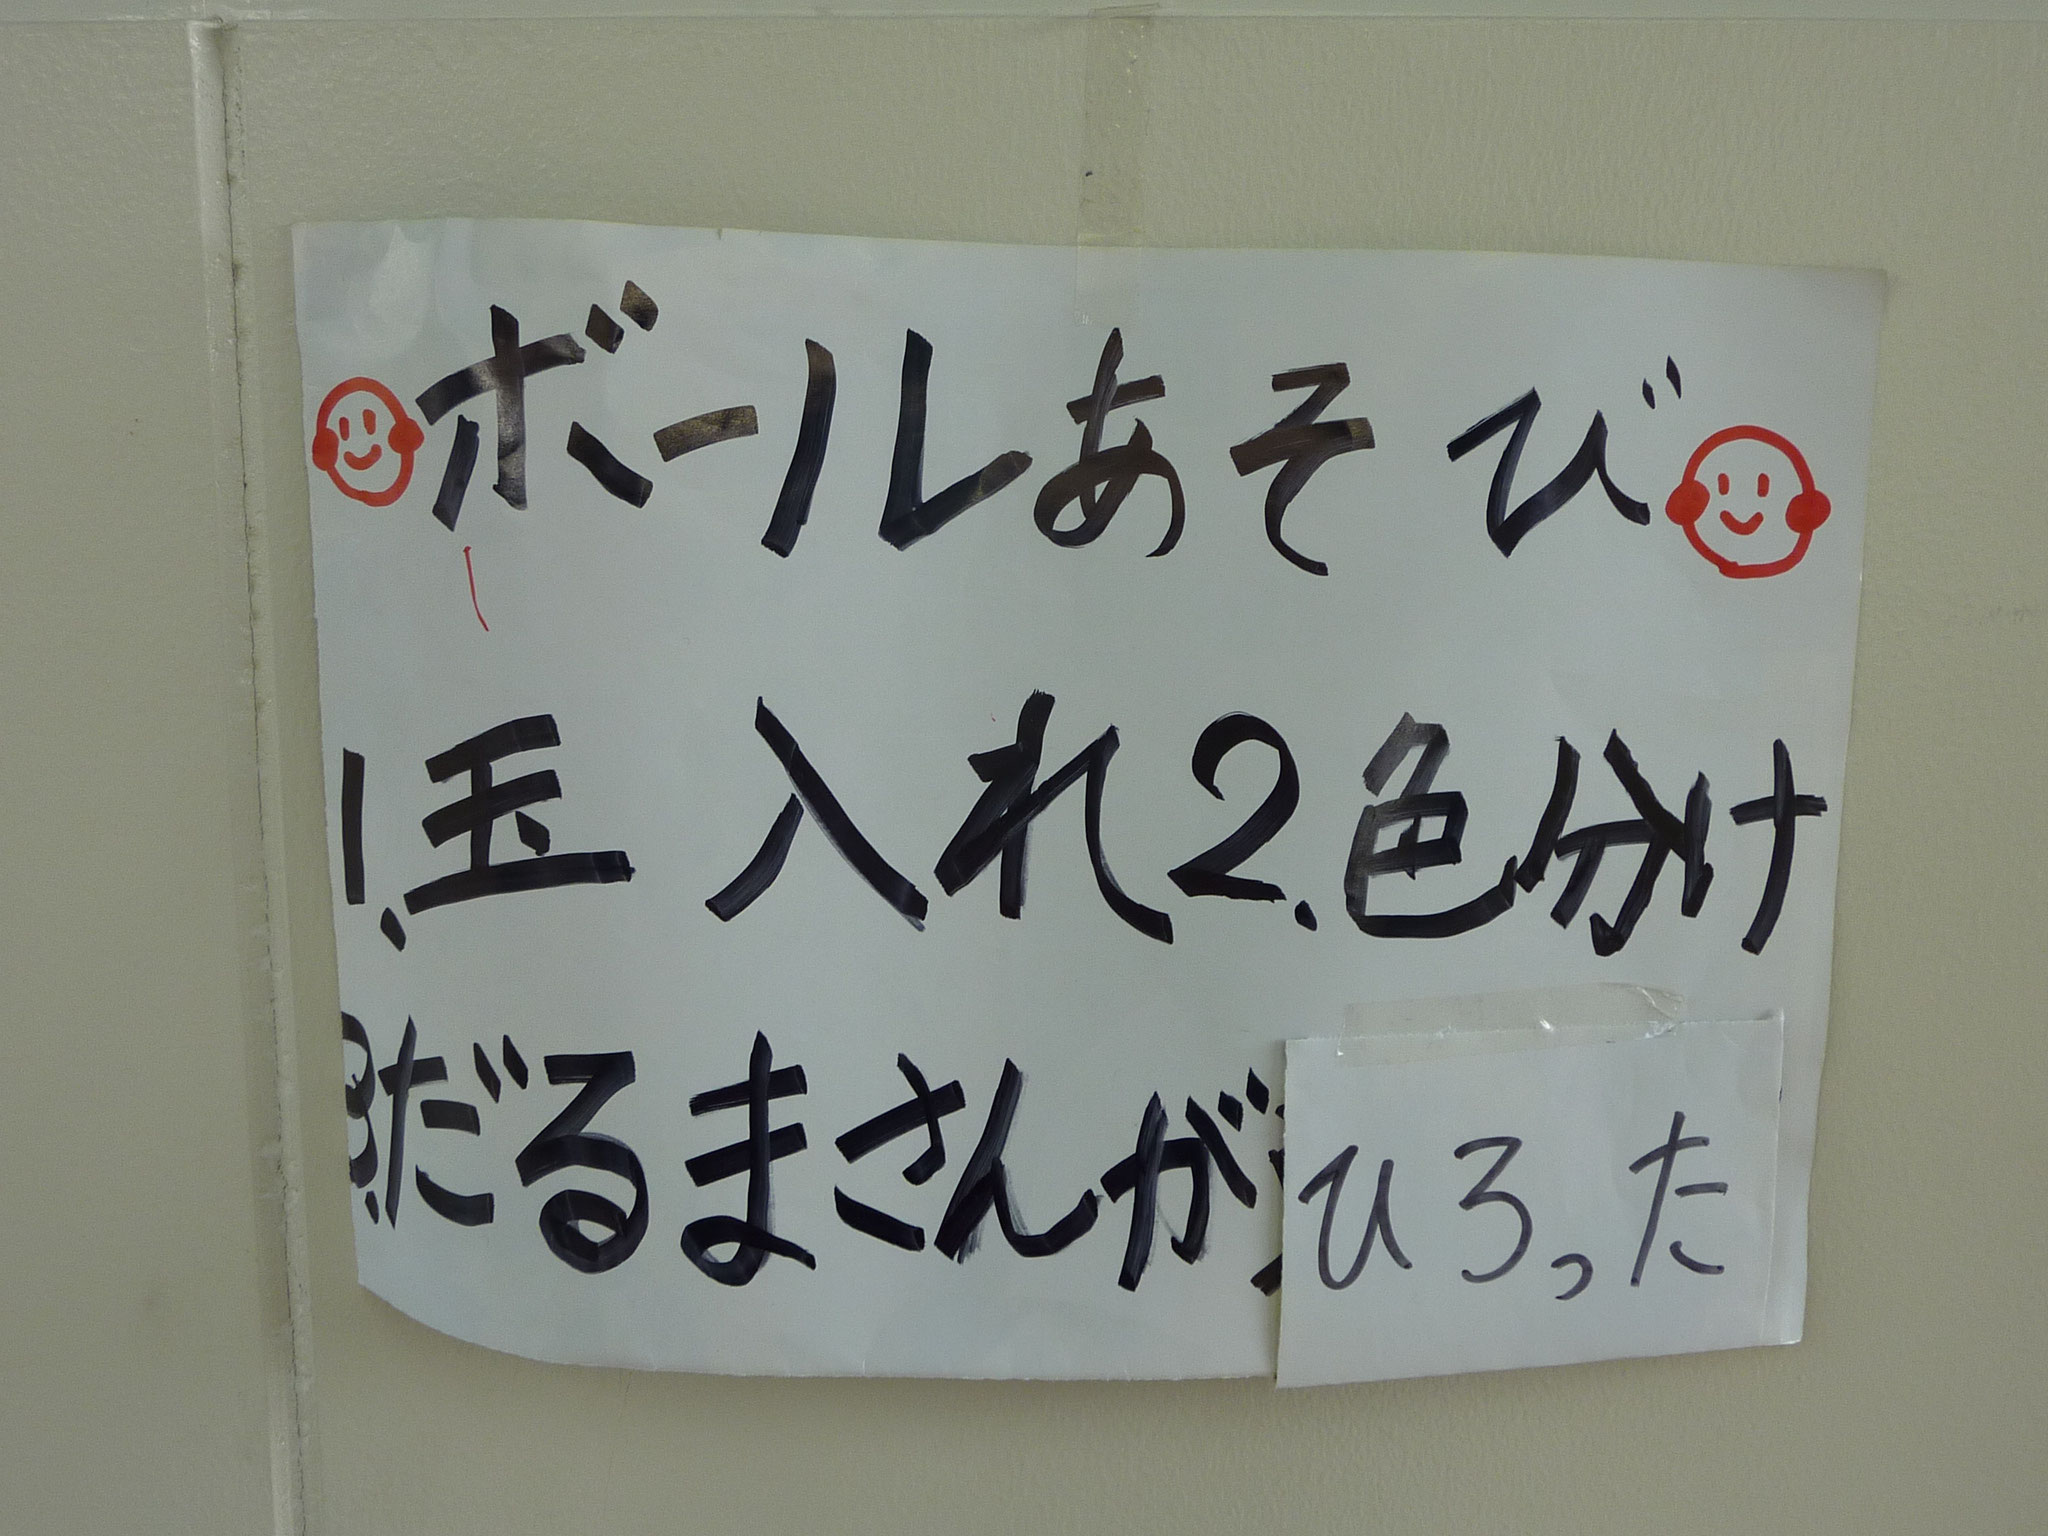 ボールあそび
1.玉入れ2.色分け
3.だるまさんがひろった